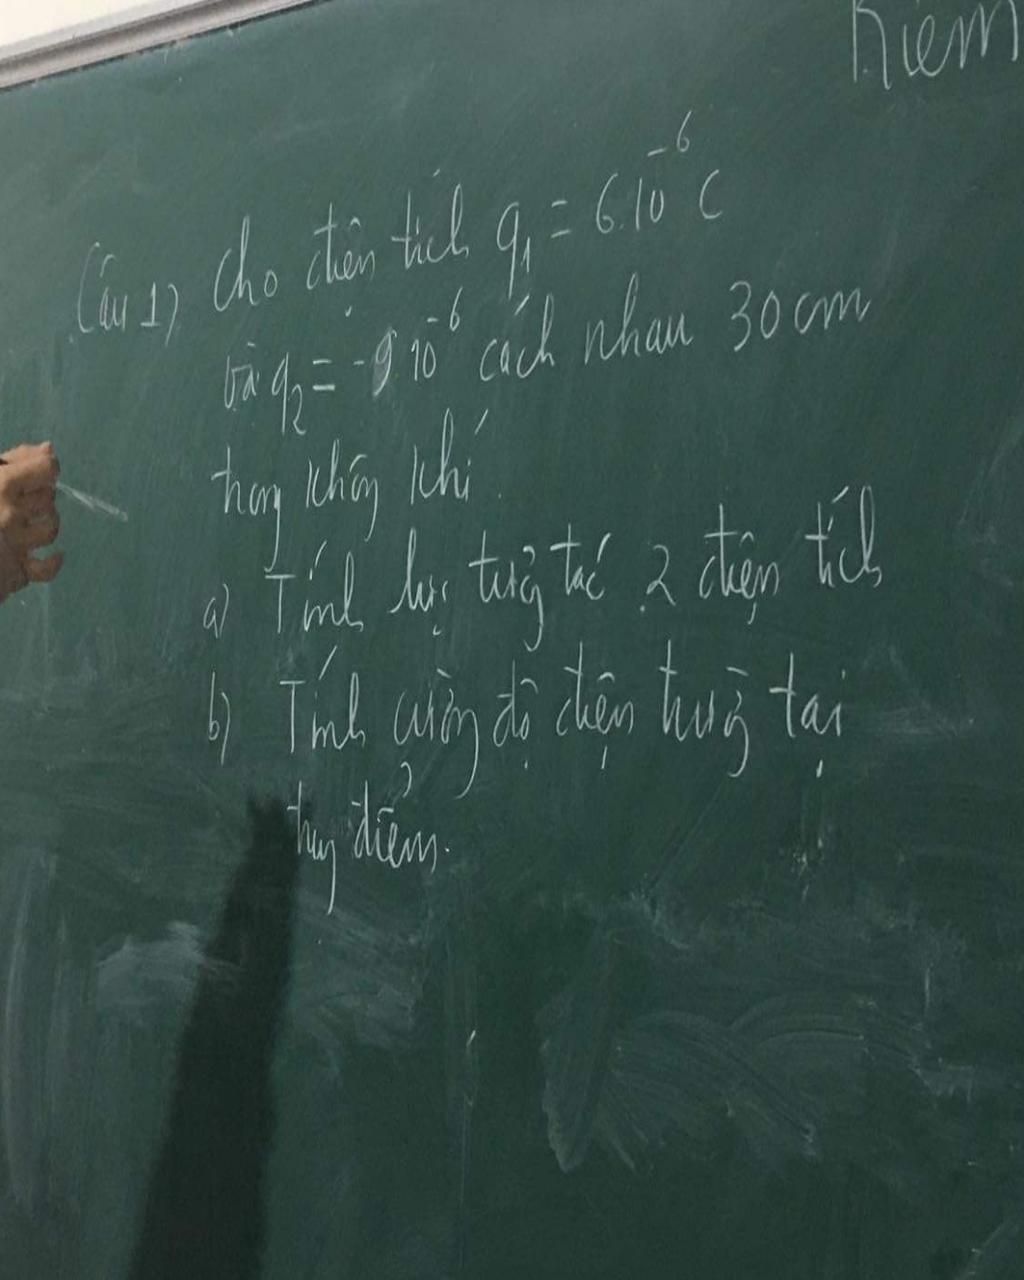 Kiểm
Câu 1) Cho điện tích q₁ = 6.10⁻⁶ C
và q₂ = -9.10⁻⁶ cách nhau 30 cm
trong không khí.
a) Tính lực tương tác 2 điện tích
b) Tính cường độ điện trường tại
trung điểm.